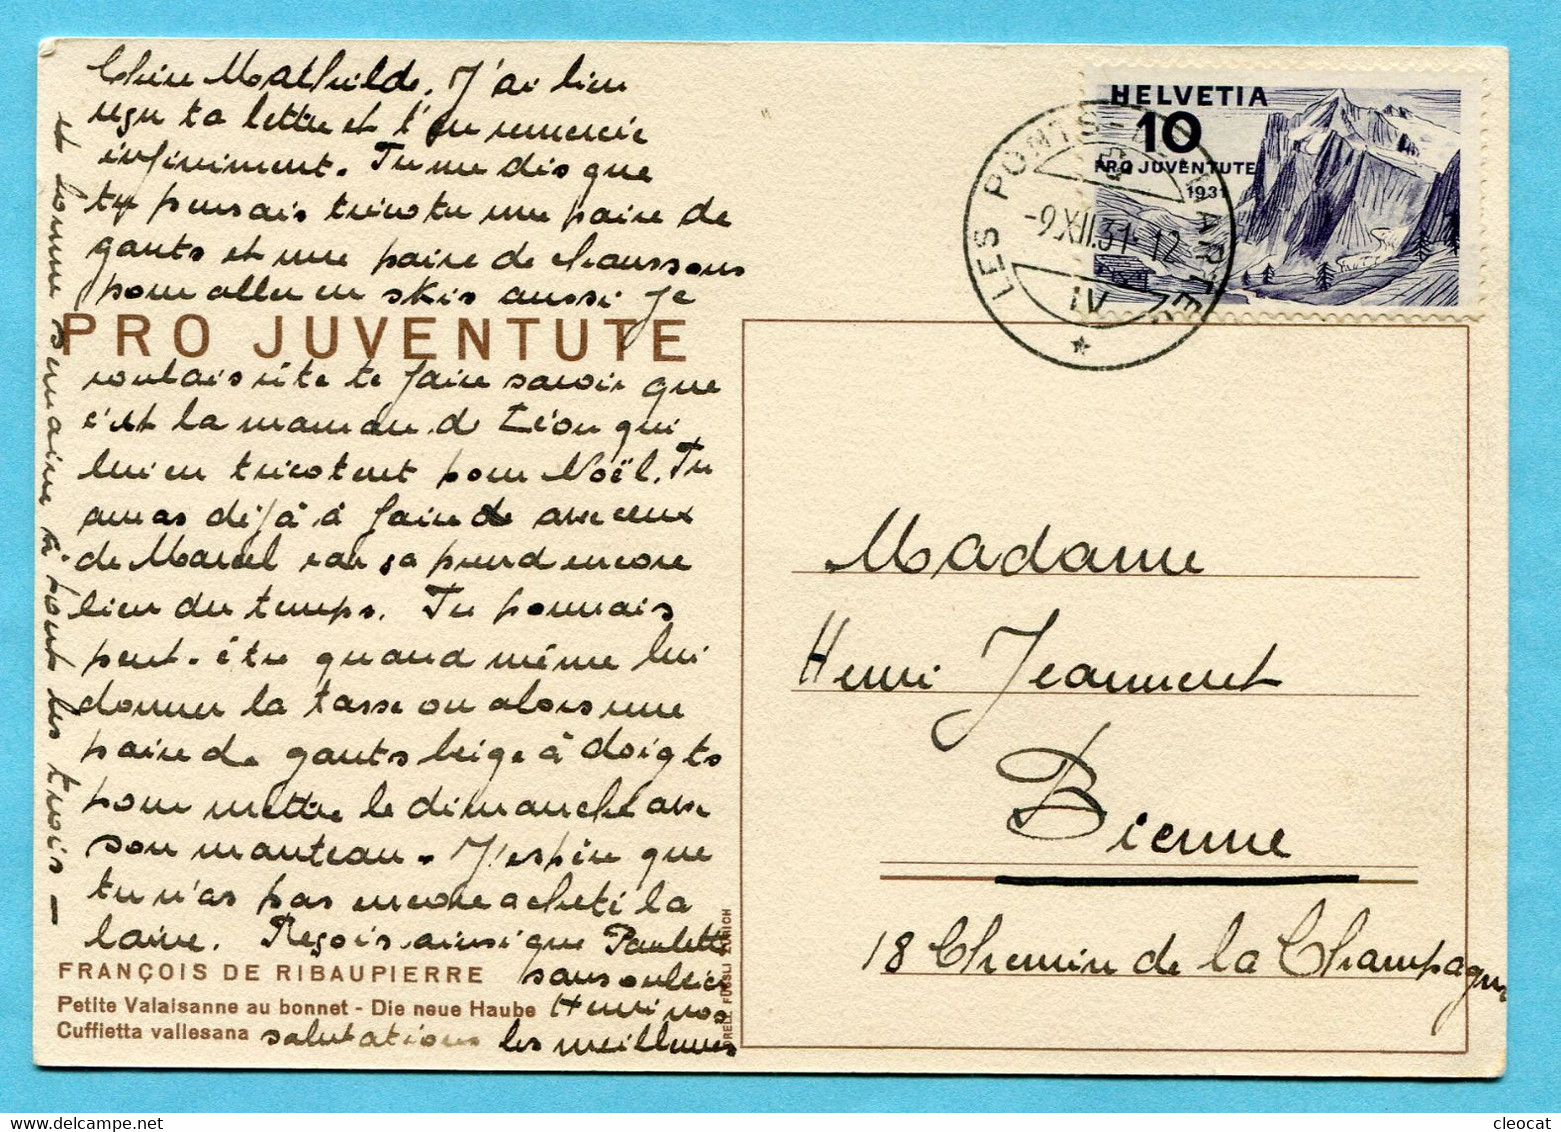 Chère Mathilde. J'ai bien
reçu ta lettre et t'en remercie
infiniment. Tu me dis que
tu pensais tricoter une paire de
gants et une paire de chaussons
pour aller en skis aussi je
PRO JUVENTUTE
voulais vite te faire savoir que
c'est la maman de Léon qui
lui en tricotent pour Noël. Tu
auras déjà à faire de avec ceux
de Marcel car ça prend encore
bien du temps. Tu pourrais
peut-être quand même lui
donner la tasse ou alors une
paire de gants beige à doigts
pour mettre le dimanche avec
son manteau. J'espère que
tu n'as pas encore acheté la
laine. Reçois ainsi que Paulette
sans oublier
Henri nos
salutations les meilleures
et bonne semaine à tout les trois –
FRANÇOIS DE RIBAUPIERRE
Petite Valaisanne au bonnet - Die neue Haube
Cuffietta vallesana
ORELL FÜSSLI ZÜRICH
HELVETIA
10
PRO JUVENTUTE
1931
LES PONTS-DE-MARTEL
-9.XII.31-12
IV
Madame
Henri Jeanneret
Bienne
18 Chemin de la Champagne
cleocat